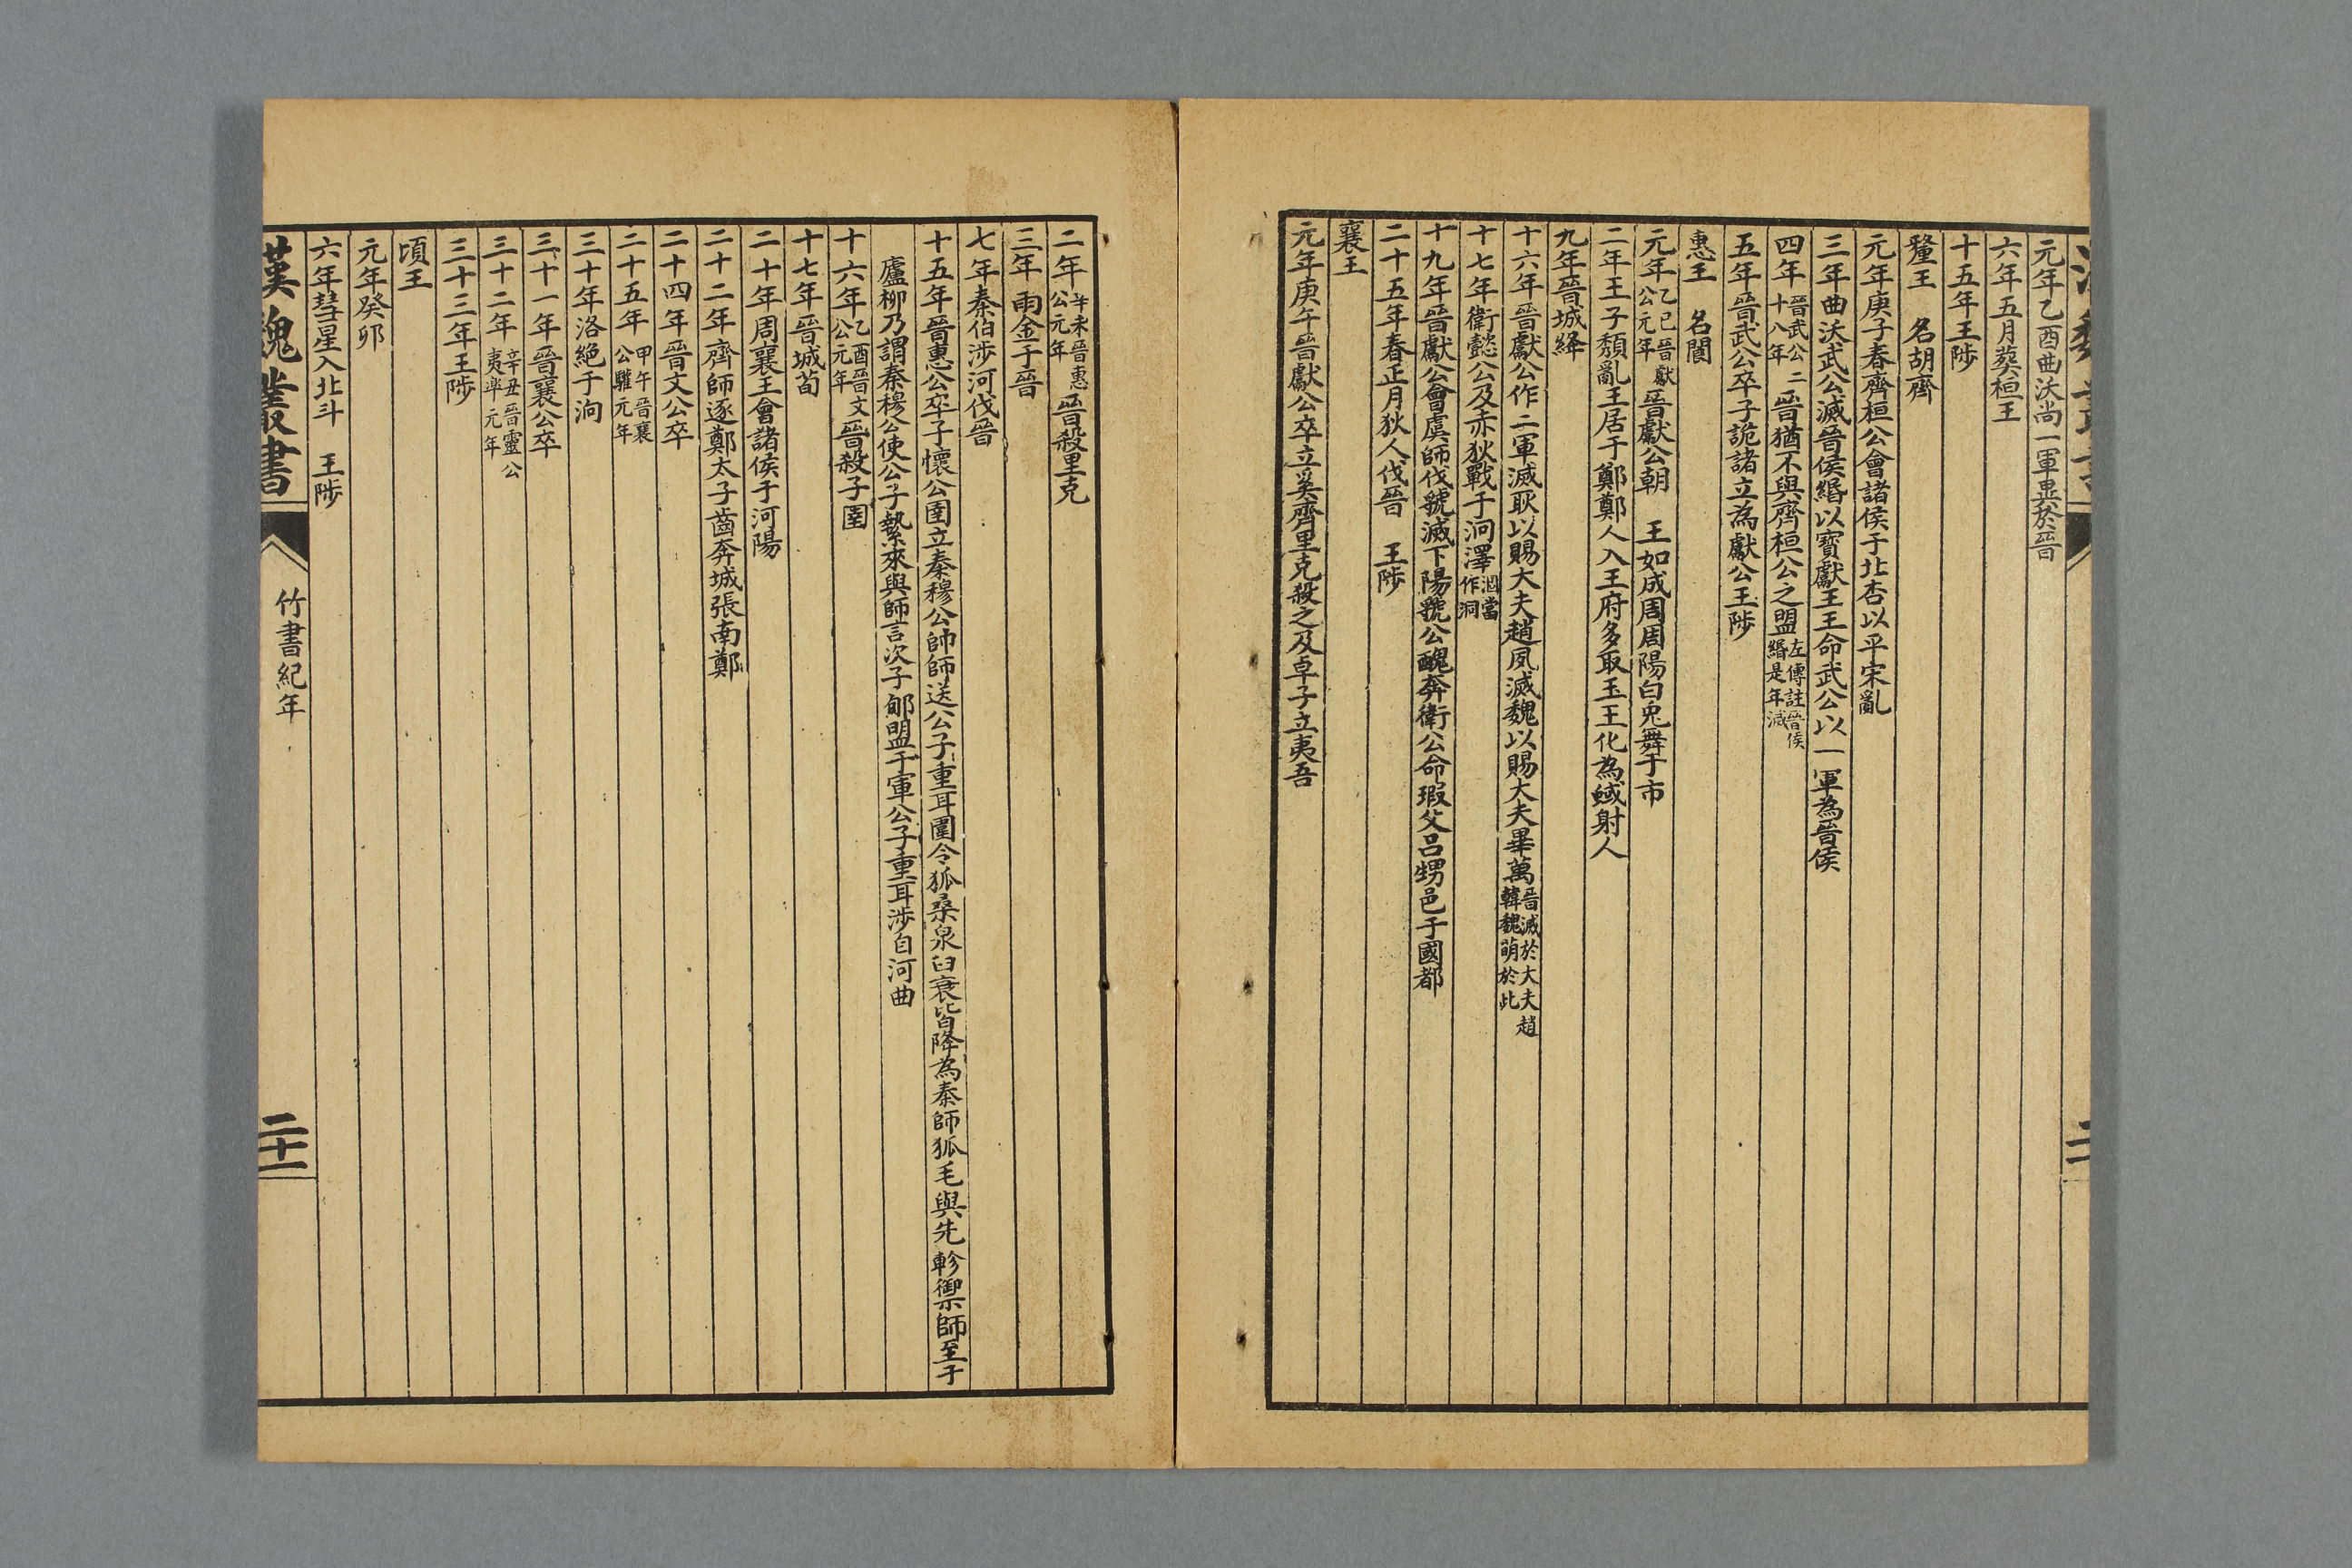 元年乙酉曲沃尚一軍異於晉
六年五月葬桓王
十五年王陟
釐王　名胡齊
元年庚子春齊桓公會諸侯于北杏以平宋亂
三年曲沃武公滅晉侯緡以寶獻王王命武公以一軍為晉侯
四年晉武公二十八年晉猶不與齊桓公之盟左傳註晉侯緡是年滅
五年晉武公卒子詭諸立為獻公王陟
惠王　名閬
元年乙巳晉獻公元年晉獻公朝　王如成周周陽白兎舞于市
二年王子頹亂王居于鄭鄭人入王府多取玉王化為蜮射人
九年晉城絳
十六年晉獻公作二軍滅耿以賜大夫趙夙滅魏以賜大夫畢萬晉滅於大夫趙韓魏萌於此
十七年衛懿公及赤狄戰于泂澤泂當作洞
十九年晉獻公會虞師伐虢滅下陽虢公醜奔衛公命瑕父呂甥邑于國都
二十五年春正月狄人伐晉　王陟
襄王
元年庚午晉獻公卒立奚齊里克殺之及卓子立夷吾
二年辛未晉惠公元年晉殺里克
三年雨金于晉
七年秦伯涉河伐晉
十五年晉惠公卒子懷公圉立秦穆公帥師送公子重耳圍令狐桑泉臼衰皆降為秦師狐毛與先軫禦師至于
廬柳乃謂秦穆公使公子縶來與師言次于郇盟于軍公子重耳涉自河曲
十六年乙酉晉文公元年晉殺子圉
十七年晉城荀
二十年周襄王會諸侯于河陽
二十二年齊師逐鄭太子齒奔城張南鄭
二十四年晉文公卒
二十五年甲午晉襄公驩元年
三十年洛絕于泂
三十一年晉襄公卒
三十二年辛丑晉靈公夷皐元年
三十三年王陟
頃王
元年癸卯
六年彗星入北斗　王陟
漢魏叢書
竹書紀年
二十一